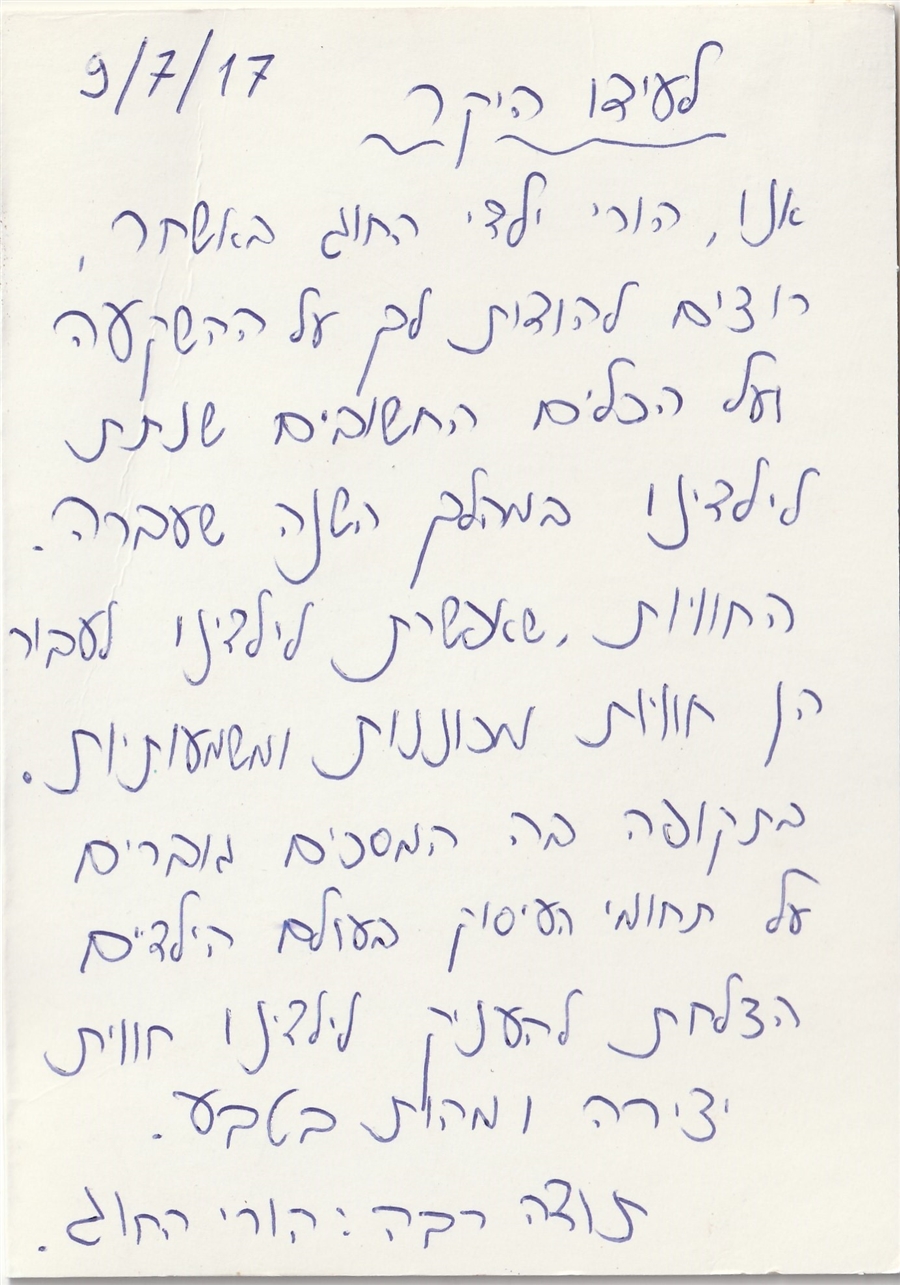 9/7/17
לעידו היקר
אנו, הורי ילדי החוג באשחר,
רוצים להודות לך על ההשקעה
ועל הכלים החשובים שנתת
לילדינו במהלך השנה שעברה.
החוויות, שאפשרת לילדינו לעבור
הן חוויות מכוננות ומשמעותיות.
בתקופה בה המסכים גוברים
על תחומי העיסוק בעולם הילדים
הצלחת להעניק לילדינו חווית
יצירה ומהות בטבע.
תודה רבה: הורי החוג.